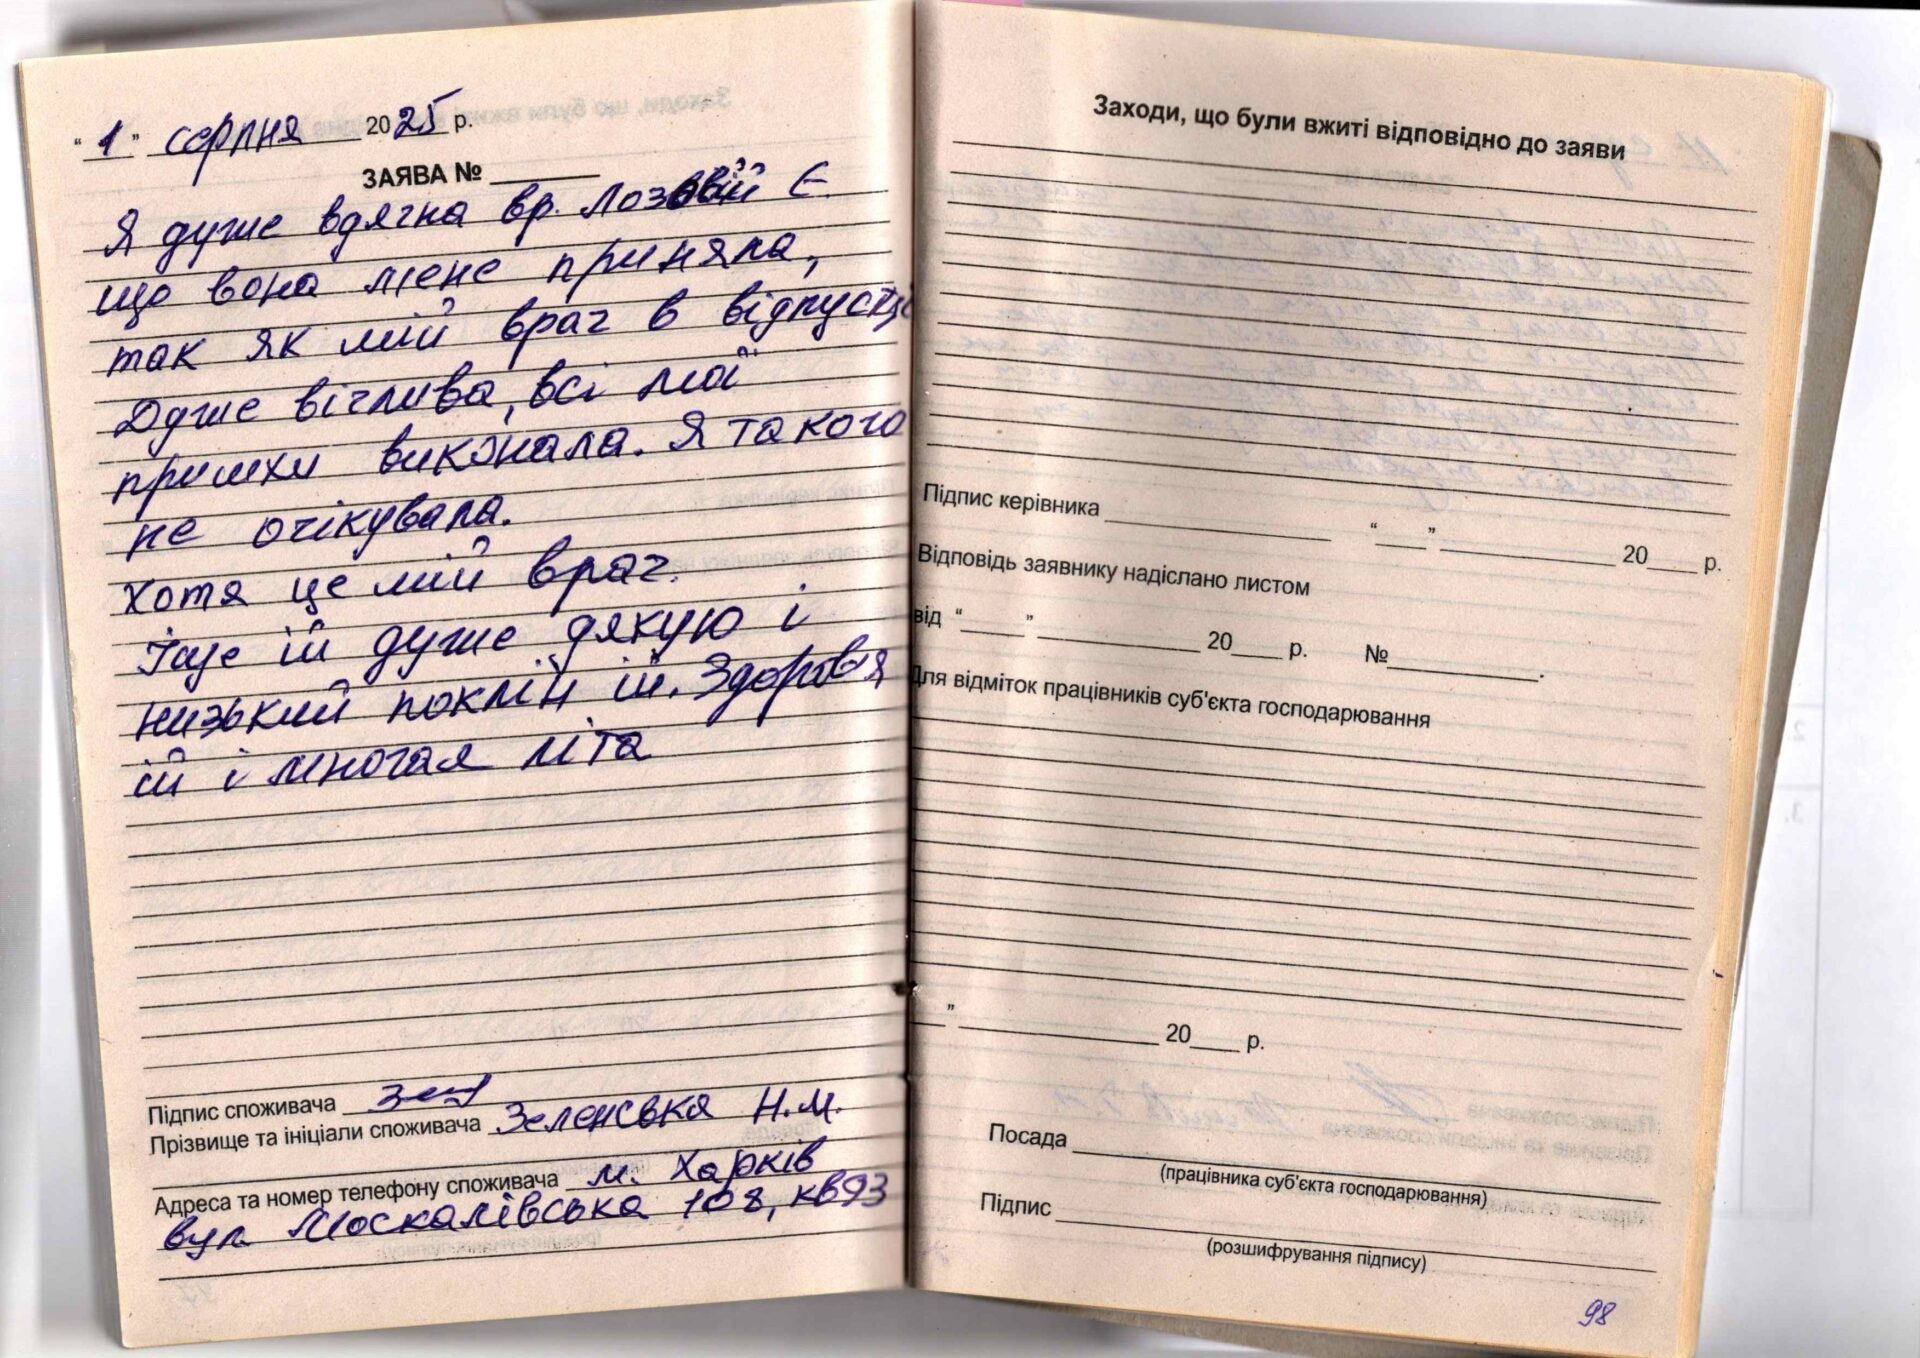 "1" серпня 2025 р.
ЗАЯВА №
Я дуже вдячна вр. Лозовій Є.
що вона мене прийняла,
так як мій врач в відпустці
Дуже вічлива, всі мої
примхи виконала. Я такого
не очікувала.
Хотя це мій врач.
Іще їй дуже дякую і
низький поклін їй. Здоровья
їй і многая літа
Підпис споживача
Прізвище та ініціали споживача Зеленсвка Н.М.
Адреса та номер телефону споживача м. Харків
вул. Москалівська 108, кв93
Заходи, що були вжиті відповідно до заяви
Підпис керівника " " 20 р.
Відповідь заявнику надіслано листом
від " " 20 р. №
Для відміток працівників суб'єкта господарювання
" 20 р.
Посада
(працівника суб'єкта господарювання)
Підпис
(розшифрування підпису)
98